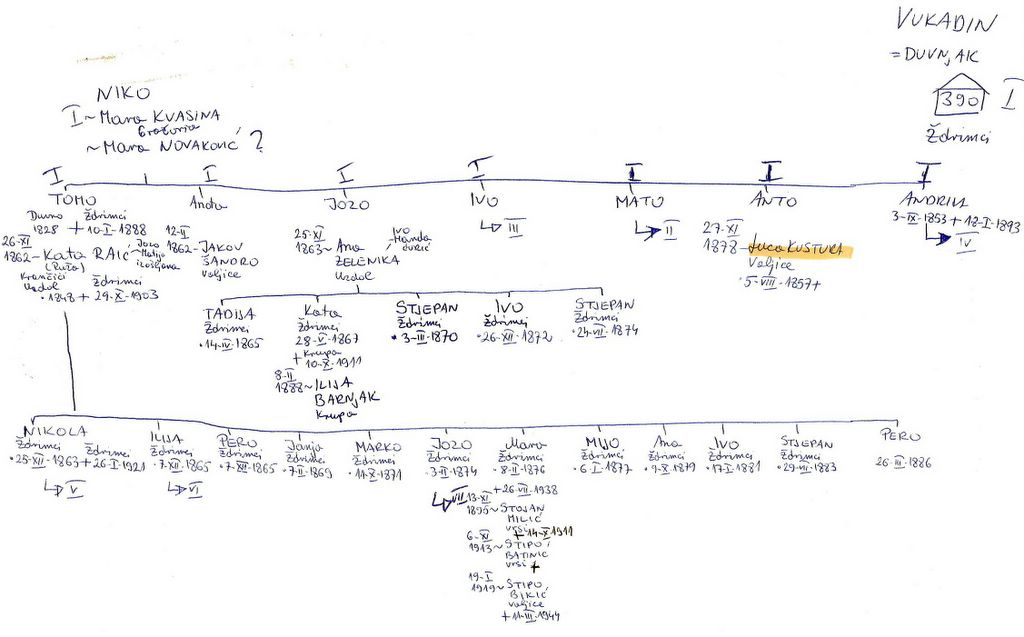 VUKADIN
= DUVNJAK
390 I
Ždrimci
NIKO
I ~ Mara KVASINA
~ Mara NOVAKOVIĆ ?
I I I I I I I
TOMO
Duvno Ždrimci
1828 + 10-I-1888
26-XI
1862 ~ Kata RAIĆ
(Ruža)
Uzdol Ždrimci
• 1848 + 29-X-1903
Jozo
Matija
Anđa
12-II
1862 ~ JAKOV
ŠANDRO
Voljice
JOZO
25-XI
1863 ~ Ana
ZELENIKA
Uzdol
Ivo
IVO
III
MATO
II
ANTO
27-XI
1878 ~ Luca KUSTURA
Voljice
• 5-VIII-1857 +
ANDRIJA
3-IX-1853 + 12-I-1893
IV
TADIJA
Ždrimci
• 14-IV-1865
Kata
Ždrimci
28-V-1867
+ Krupa
10-X-1911
8-II
1888 ~ ILIJA
BARNJAK
Krupa
STJEPAN
Ždrimci
• 3-III-1870
IVO
Ždrimci
• 26-XII-1872
STJEPAN
Ždrimci
• 24-VII-1874
NIKOLA
Ždrimci Ždrimci
• 25-XII-1863 + 26-I-1921
V
ILIJA
Ždrimci
• 7-XII-1865
VI
PERO
Ždrimci
• 7-XII-1865
Janja
Ždrimci
• 7-II-1869
MARKO
Ždrimci
• 14-X-1871
JOZO
Ždrimci
• 3-II-1874
VII
Mara
Ždrimci
• 8-II-1876
+ 26-VII-1938
13-XI
1895 ~ STOJAN
MILIĆ
Vrsi
+ 14-X-1911
6-XI
1913 ~ STIPO
BATINIĆ
Vrsi +
19-I
1919 ~ STIPO
BIKIĆ
Voljice
+ 11-III-1944
MIJO
Ždrimci
• 6-I-1877
Ana
Ždrimci
• 9-X-1879
IVO
Ždrimci
• 17-I-1881
STJEPAN
Ždrimci
• 29-VII-1883
PERO
26-III-1886